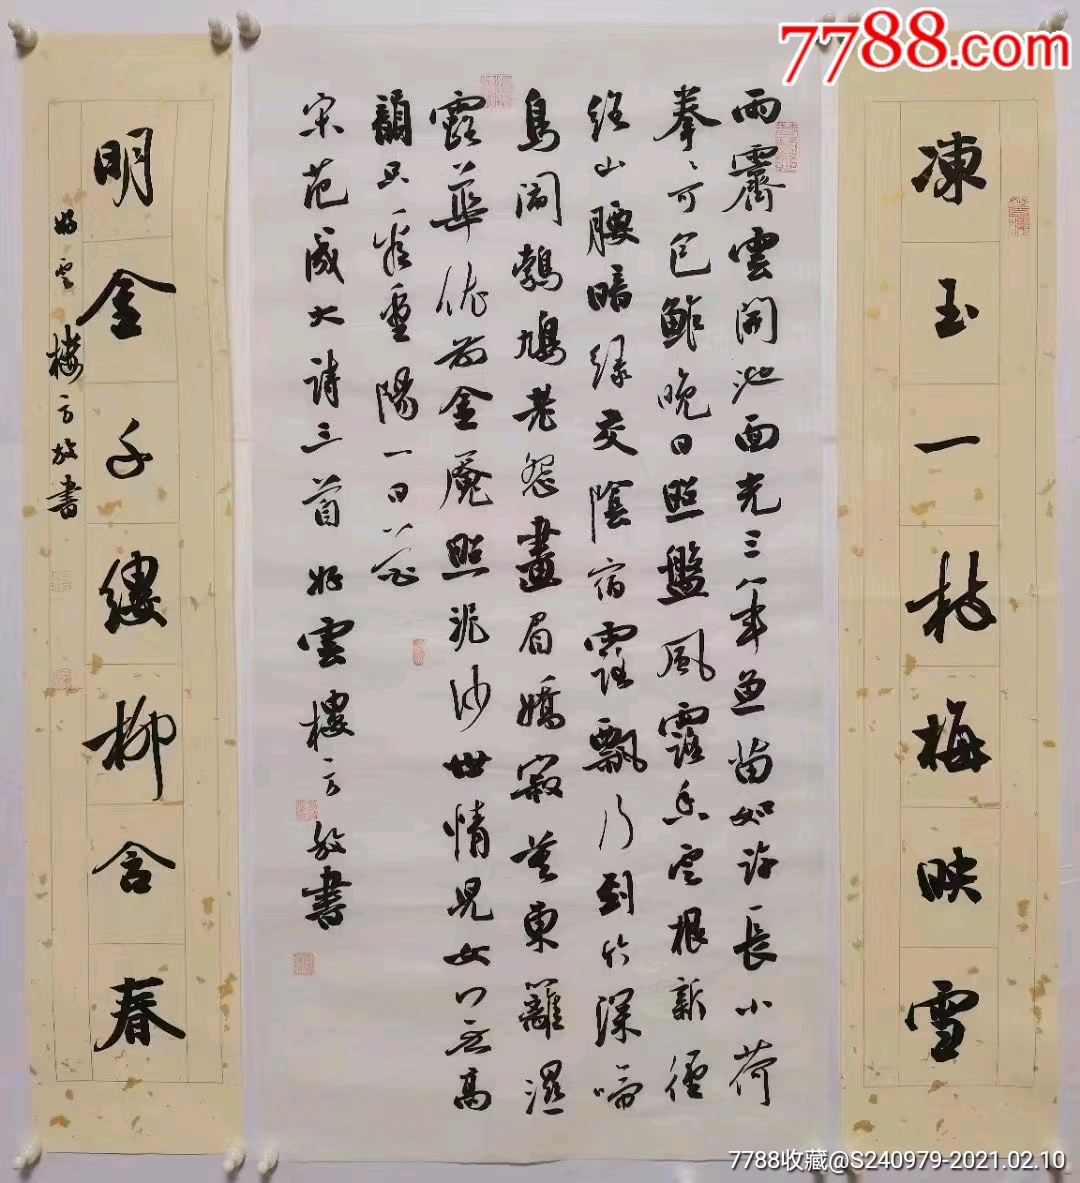 7788.com
凍玉一枝梅映雪
雨霽雲開池面光三年魚苗如許長小荷
拳々可包鮓晚日照盤風露香雲根新徑
繞山腰暗綠交陰宿露飄行到竹深啼
鳥鬧鵓鳩老怨畫眉嬌寂莫東籬濕
露華依前金靨照泥沙世情兒女無高
韻只看重陽一日花
宋范成大詩三首好雲樓方放書
明金千縷柳含春
好雲樓方放書
7788收藏@S240979-2021.02.10